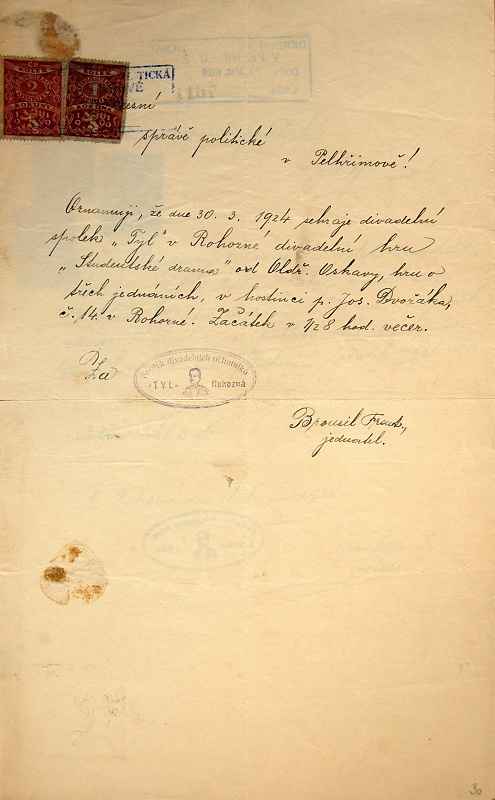 KOLEK
2
KORUNY
1919
KOLEK
1
KORUNA
1919
TICKÁ
správě politické
v Pelhřimově!
Oznamuji, že dne 30. 3. 1924 sehraje divadelní
spolek „Tyl" v Rohozné divadelní hru
„Studentské drama" od Oldř. Oskavy, hru o
třech jednáních, v hostinci p. Jos. Dvořáka,
č. 14. v Rohozné. Začátek v 1/28 hod. večer.
Za
Spolek divadelních ochotníků
"TYL" Rohozná
Brousil Frant.,
jednatel.
30